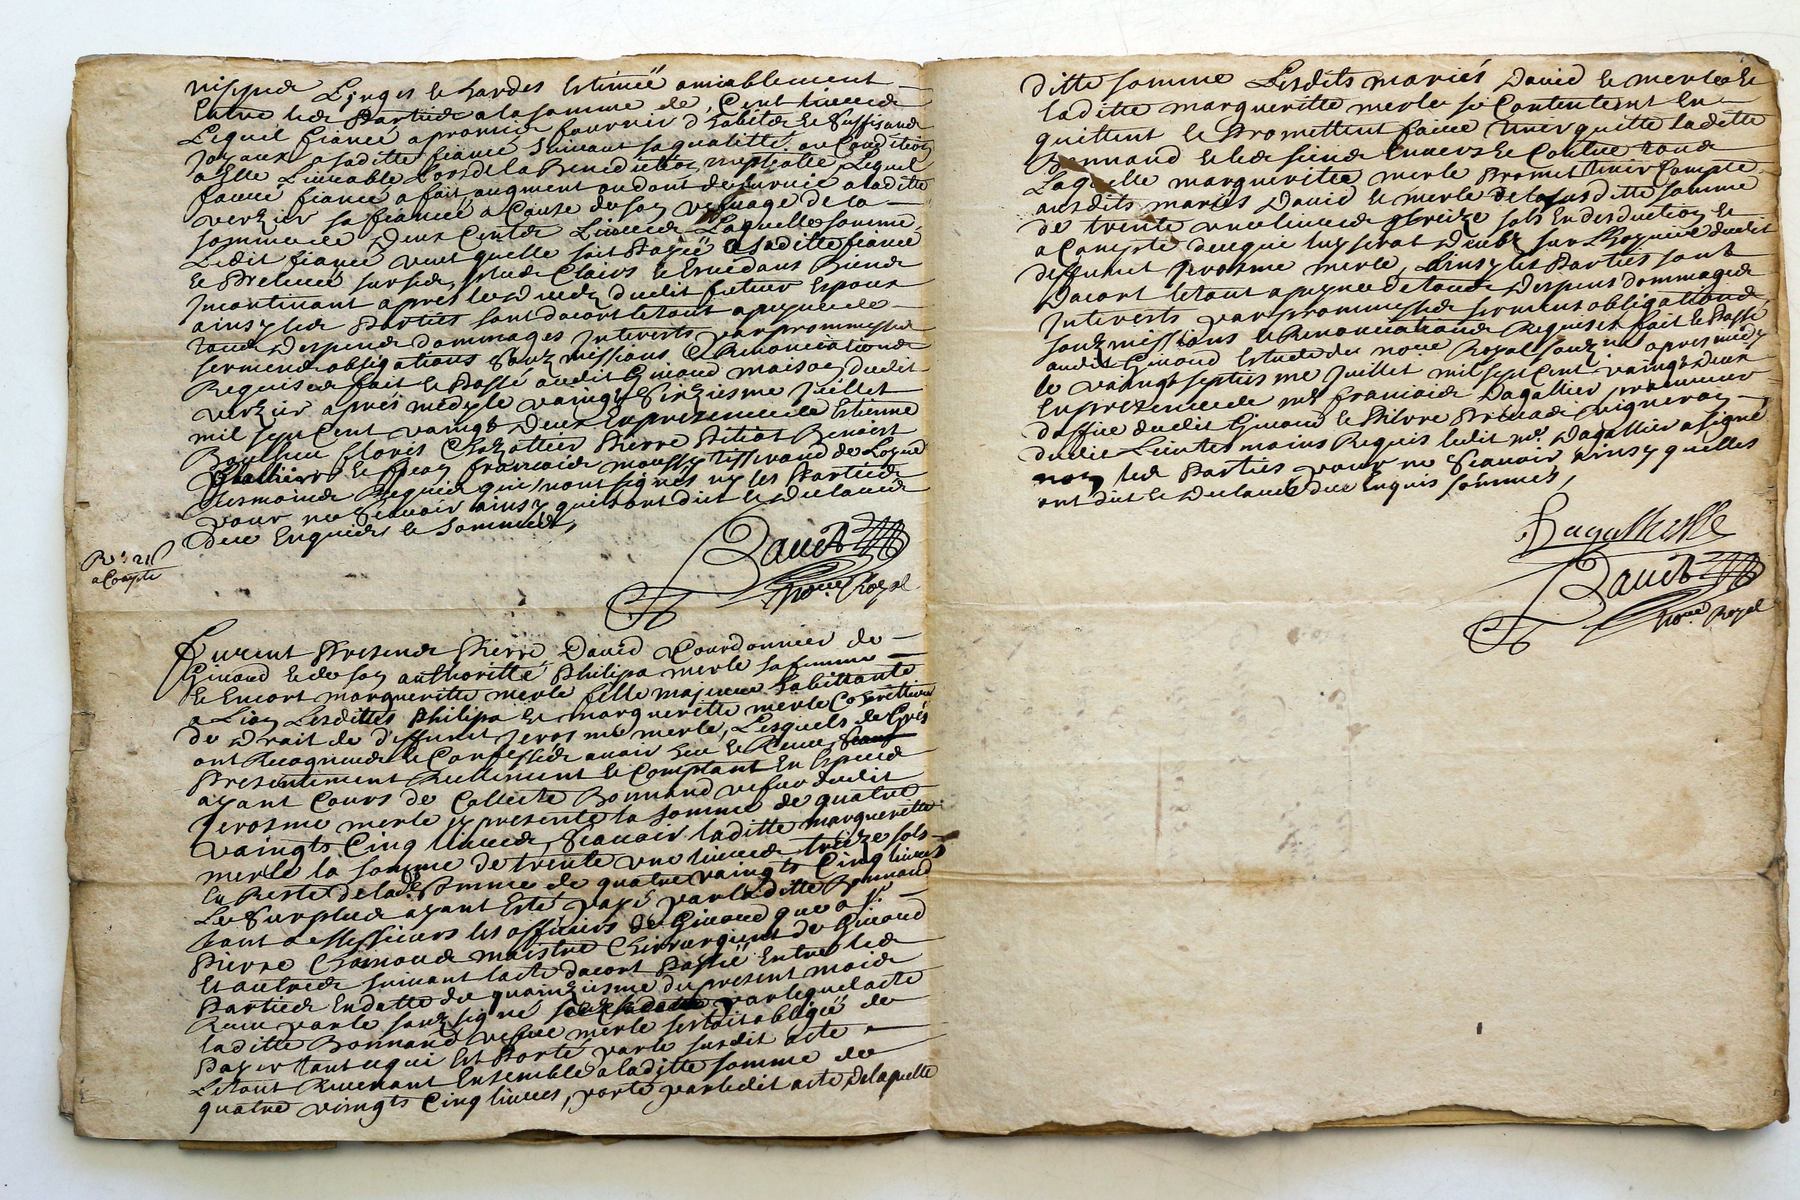 Linges et hardes estimée amiablement
Entre les Parties a la somme de Cent livres
Lequel fiancé a promis fournir d'habits et suffisans
Joyaux a saditte fiancé suivant sa qualitté ou Condition
a Elle Livrable Lors de la Benediction nuptialle Lequel
fiancé a fait augment ou dont de survie a laditte
verzier sa fiancée a Cause de son veusvage de la
somme de deux Cents Livres Laquelle somme
Ledit fiancé veut quelle soit payée a saditte fiancé
et Prelevée sur ses plus Clairs et liquidans Biens
Incontinant apres le deceds dudit futeur Espoux
ainsy les Parties sont dacort letout a peyne de
tous despens dommages Interests par prommesses
serments obligations souzmissions et Renonciations
Requises fait et Passé audit Givord maison dudit
verzier après medy le vaingt sixiesme Juillet
mil sept Cent vaingt deux En presence de Estienne
Bouchu Cloris Chozottier Pierre Benoist
et Jean francois moussy tisserand de Loyre
tesmoins Requis qui nont signés ny les Parties
pour ne scavoir ainsy quils ont dit et declaré
de ce Enquis et sommés,
a Compte
David
nore Royal
Furent Presents Pierre David Courdonnier de
Givord et de son authoritté Philipa merle sa femme
Et Encort margueritte merle fille majeure habittante
a Lion Lesdittes Philipa et margueritte merle Coheritieres
de droit de deffunt Jerosme merle, Lesquels de Grés
ont Recogneu et Confessés avoir heu et Receu
Presentement Reellement et Comptant En Especes
ayant Cours de Collette Bonnand vefve dudit
Jerosme merle Ici presente la somme de quatre
vaingts Cinq livres, scavoir laditte margueritte
merle la somme de trente une livres treize sols
En Reste de lade. somme de quatre vaingts Cinq livres
Le Surplus ayant esté payé par laditte Bonnand
tant a Messieurs les officiers de Givord que a Sr.
Pierre Chomard maistre Chirurgient de Givord
Et autres suivant lacte dacort Passé Entre les
Parties En datte du quainziesme du present mois
Receu par le souzsigné par lequel acte
laditte Bonnand vefve merle seroit obligée de
Payer tant ce qui Est Porté par le susdit acte
Letout Revenant Ensemble a laditte somme de
quatre vaingts Cinq livres, porté par ledit acte de laquelle
ditte somme Lesdits mariés David et merle et
laditte margueritte merle se Contentent En
quittent et Promettent faire tenir quitte laditte
Bonnand et les siens Envers et Contre tous
Laquelle margueritte merle Promet tenir Compte
ausdits mariés David et merle de la susditte somme
de trente une livres treize sols En desduction et
a Compte de ce qui luy serat deubt sur L'hoyrie dudit
deffunt Jerosme merle, ainsy les Parties sont
dacort letout a peyne de tous despens dommages
Interests par prommesses serments obligations,
souzmissions et Renonciations Requises fait et Passé
audit Givord Estude du nore Royal souzné apres medy
le vaingt septiesme Juillet mil sept Cent vaingt deux
En presence de me francois Dagallier procureur
doffice dudit Givord et Pierre vigneron
dudit Lieu tesmoins Requis ledit me. Dagallier a signé
non les Parties pour ne scavoir ainsy quelles
ont dit et declaré de ce Enquis sommés,
Dagallier
David
nore Royal